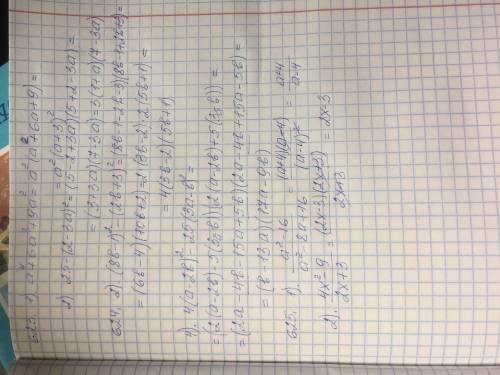 623. 1) a⁴+6a³+9a²=a²(a²+6a+9)=
=a²(a+3)²
2) 25-(2-3a)²=(5-2+3a)(5+2-3a)=
=(3+3a)(7-3a)=3(1+a)(7-3a)
624. 2) (8b-1)²-(2b+3)²=(8b-1-2b-3)(8b-1+2b+3)=
=(6b-4)(10b+2)=2(3b-2)·2(5b+1)=
=4(3b-2)(5b+1)
4). 4(a-2b)²-25(3a-b)²=
=(2(a-2b)-5(3a-b))(2(a-2b)+5(3a-b))=
=(2a-4b-15a+5b)(2a-4b+15a-5b)=
=(b-13a)(17a-9b)
625. 1). a²-16 / a²-8a+16 = (a+4)(a-4) / (a-4)² = a+4 / a-4
2). 4x²-9 / 2x+3 = (2x-3)(2x+3) / 2x+3 = 2x-3